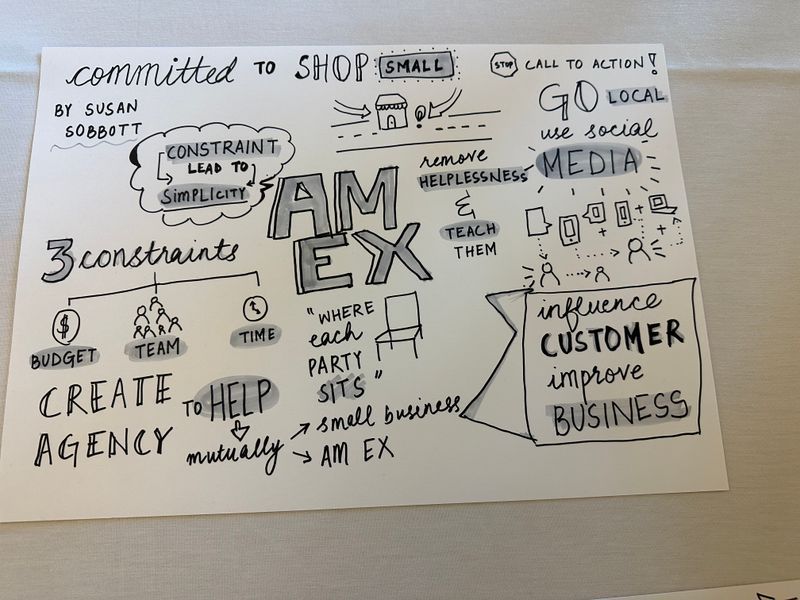 committed TO SHOP SMALL
BY SUSAN
SOBBOTT
STOP CALL TO ACTION!
GO LOCAL
use social
MEDIA
CONSTRAINT
LEAD TO
SIMPLICITY
AM
EX
remove
HELPLESSNESS
&
TEACH
THEM
3 constraints
$
BUDGET
TEAM
TIME
"WHERE
each
PARTY
SITS"
CREATE
AGENCY
TO HELP
mutually
small business
AM EX
influence
CUSTOMER
improve
BUSINESS